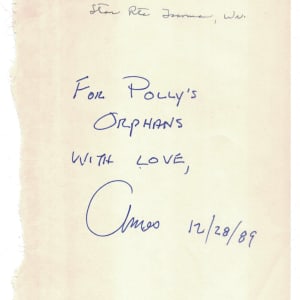 Star Rte
For Polly's
Orphans
With love,
Amos 12/28/89